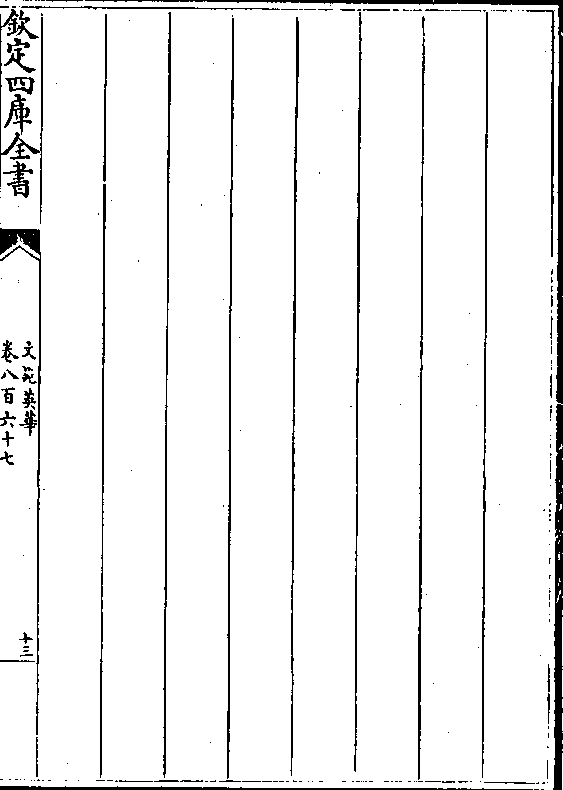 欽定四庫全書
文苑英華
卷八百六十七
十三